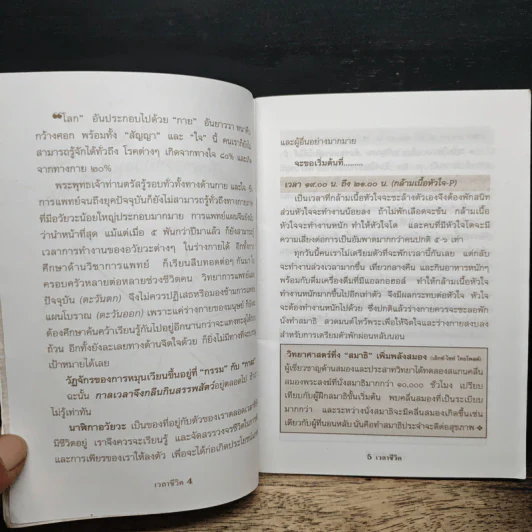 ❝โลก" อันประกอบไปด้วย "กาย" อันยาววา หนาคืบ
กว้างศอก พร้อมทั้ง "สัญญา" และ "ใจ" นี้ คนเราก็ยังไม่
สามารถรู้จักได้ทั่วถึง โรคต่างๆ เกิดจากทางใจ ๘๐% และเกิด
จากทางกาย ๒๐%
พระพุทธเจ้าท่านตรัสรู้รอบทั่วทั้งทางด้านกาย และใจ
การแพทย์จนถึงยุคปัจจุบันก็ยังไม่สามารถรู้ทั่วถึงทางกาย
ที่มีอวัยวะน้อยใหญ่ประกอบมากมาย การแพทย์แผนจีนยัง
ว่านำหน้าที่สุด แม้แต่เมื่อ ๕ พันกว่าปีมาแล้ว ก็ยังสามารถ
เวลาการทำงานของอวัยวะต่างๆ ในร่างกายได้ อีกทั้งการ
ศึกษาด้านวิชาการแพทย์ ก็เรียนสืบทอดต่อๆ กันมา
ครอบครัวหลายต่อหลายช่วงชีวิตคน วิทยาการแพทย์แผน
ปัจจุบัน (ตะวันตก) จึงไม่ควรปฏิเสธหรือมองข้ามการแพทย์
แผนโบราณ (ตะวันออก) เพราะแค่ร่างกายของมนุษย์ ก็ยัง
ต้องศึกษาค้นคว้าเรียนรู้กันไปอยู่อีกนานกว่าจะแทงทะลุได้
ถ้วน อีกทั้งยังละเลยทางด้านจิตใจด้วย ก็ยังไม่มีทางที่จะ
เป้าหมายได้เลย
วัฏจักรของการหมุนเวียนขึ้นอยู่ที่ "กรรม" กับ "กาล"
ฉะนั้น กาลเวลาจึงกลืนกินสรรพสัตว์อยู่ตลอดไป
ไม่รู้เท่าทัน
นาฬิกาอวัยวะ เป็นของที่อยู่กับตัวของเราตลอดเวลาที่
มีชีวิตอยู่ เราจึงควรจะเรียนรู้ และจัดสรรวงจรชีวิตในการ
และการเพียรของเราให้ลงตัว เพื่อจะได้ก่อเกิดประโยชน์
เวลาชีวิต 4
และผู้อื่นอย่างมากมาย
จะขอเริ่มต้นที่.........
เวลา ๑๙.๐๐ น. ถึง ๒๑.๐๐ น. (กล้ามเนื้อหัวใจ-P)
เป็นเวลาที่กล้ามเนื้อหัวใจจะระล้างตัวเองจึงต้องพักสนิท
ส่วนหัวใจจะทำงานน้อยลง ถ้าไม่พักเลือดจะข้น กล้ามเนื้อ
หัวใจจะทำงานหนัก ทำให้หัวใจโต และคนที่มีหัวใจโตจะมี
ความเสี่ยงต่อการเป็นอัมพาตมากกว่าคนปกติ ๕-๖ เท่า
ทุกวันนี้คนเราไม่เตรียมตัวที่จะพักเวลานี้กันเลย แต่กลับ
จะทำงานล่วงเวลามากขึ้น เที่ยวกลางคืน และกินอาหารหนักๆ
พร้อมกับดื่มเครื่องดื่มที่มีแอลกอฮอล์ ทำให้กล้ามเนื้อหัวใจ
ทำงานหนักมากขึ้นไปอีกเท่าตัว จึงมีผลกระทบต่อหัวใจ หัวใจ
จะต้องทำงานหนักไปด้วย ซึ่งปกติแล้วร่างกายควรจะระลอพัก
นั่งทำสมาธิ สวดมนต์ไหว้พระเพื่อให้จิตใจและร่างกายสงบลง
สำหรับการเตรียมตัวพักผ่อนหลับนอน
วิทยาศาสตร์ทึ่ง "สมาธิ" เพิ่มพลังสมอง
ผู้เชี่ยวชาญด้านสมองและประสาทวิทยาได้ทดลองสแกนคลื่น
สมองพระสงฆ์ที่นั่งสมาธิมากกว่า ๑๐,๐๐๐ ชั่วโมง เปรียบ
เทียบกับผู้ฝึกสมาธิขั้นเริ่มต้น พบคลื่นสมองที่เป็นระเบียบ
มากกว่า และระหว่างนั่งสมาธิจะมีคลื่นสมองเกิดขึ้นเช่น
เดียวกับผู้ที่นอนหลับ นั่นคือทำสมาธิประจำจะดีต่อสุขภาพ ❖
5 เวลาชีวิต